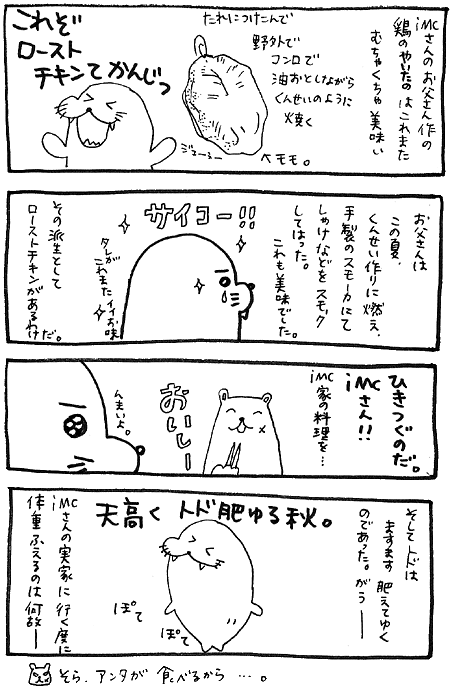 iMCさんのお父さん作の
鶏のやいたのはこれまた
むちゃくちゃ美味い
たれにつけこんで
野外で
コンロで
油おとしながら
くんせいのように
焼く
これぞ
ロースト
チキンてかんじっ
ジューシー
←モモ。
お父さんは
この夏、
くんせい作りに燃え、
手製のスモーカにて
しゃけなどをスモック
してはった。
これも美味でした。
サイコー!!
タレが
これまたイイお味
その派生として
ローストチキンがあるわけだ。
ひきつぐのだ。
iMCさん!!
iMC家の料理を…
おいしー
んまいよ。
そしてトドは
ますます肥えてゆく
のであった。がうー
天高くトド肥ゆる秋。
ぽて
ぽて
iMCさんの実家に行く度に
体重ふえるのは何故ー
そら、アンタが食べるから…。